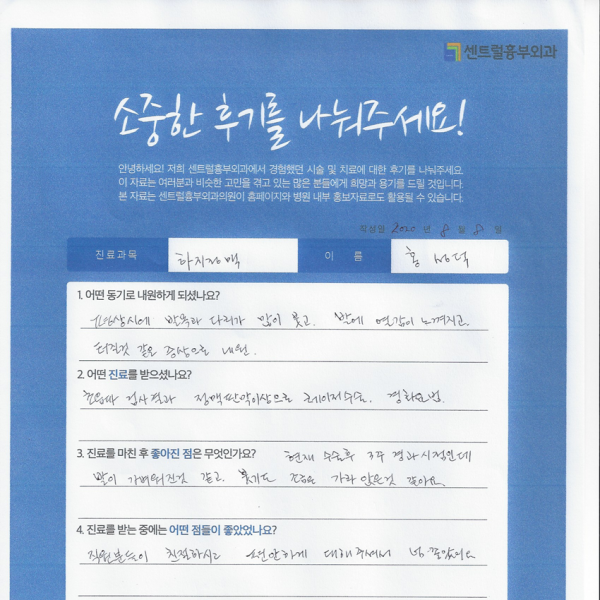 센트럴흉부외과
소중한 후기를 나눠주세요!
안녕하세요! 저희 센트럴흉부외과에서 경험했던 시술 및 치료에 대한 후기를 나눠주세요.
이 자료는 여러분과 비슷한 고민을 겪고 있는 많은 분들에게 희망과 용기를 드릴 것입니다.
본 자료는 센트럴흉부외과의원이 홈페이지와 병원 내부 홍보자료로도 활용될 수 있습니다.
작성일 2020 년 8 월 8 일
진료과목 하지정맥 이 름 홍성덕
1. 어떤 동기로 내원하게 되셨나요?
발목과 다리가 많이 붓고. 발에 열감이 느껴지고.
터질것 같은 증상으로 내원.
2. 어떤 진료를 받으셨나요?
초음파 검사결과 정맥판막이상으로 레이저수술. 경화요법.
3. 진료를 마친 후 좋아진 점은 무엇인가요? 현재 수술후 3주 경과시점인데
발이 가벼워진것 같고. 붓기도 조금은 가라앉은것 같아요.
4. 진료를 받는 중에는 어떤 점들이 좋았었나요?
직원분들이 친절하시고 편안하게 대해주셔서 넘 좋았어요